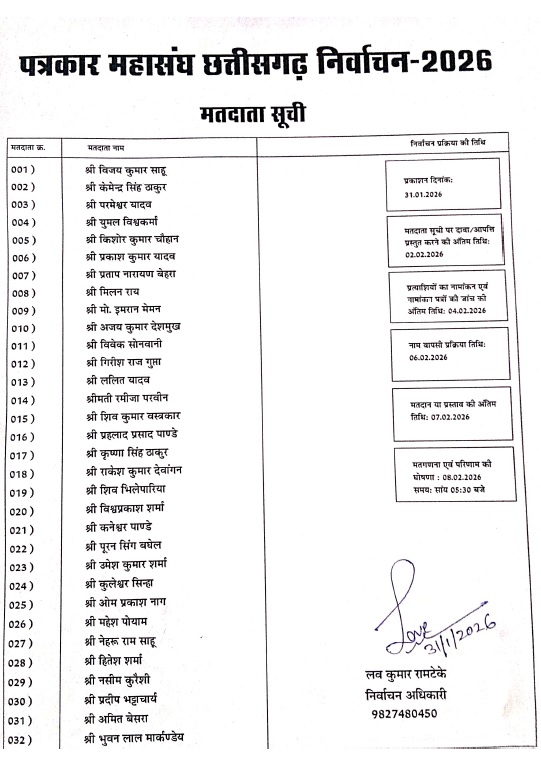 पत्रकार महासंघ छत्तीसगढ़ निर्वाचन-2026
मतदाता सूची
मतदाता क्र. मतदाता नाम निर्वाचन प्रक्रिया की तिथि
001) श्री विजय कुमार साहू
002) श्री केमेन्द्र सिंह ठाकुर
003) श्री परमेश्वर यादव
004) श्री युमल विश्वकर्मा
005) श्री किशोर कुमार चौहान
006) श्री प्रकाश कुमार यादव
007) श्री प्रताप नारायण बेहरा
008) श्री मिलन राय
009) श्री मो. इमरान मेमन
010) श्री अजय कुमार देशमुख
011) श्री विवेक सोनवानी
012) श्री गिरीश राज गुप्ता
013) श्री ललित यादव
014) श्रीमती रमीजा परवीन
015) श्री शिव कुमार वस्त्रकार
016) श्री प्रहलाद प्रसाद पाण्डे
017) श्री कृष्णा सिंह ठाकुर
018) श्री राकेश कुमार देवांगन
019) श्री शिव भिलेपारिया
020) श्री विश्वप्रकाश शर्मा
021) श्री कनेश्वर पाण्डे
022) श्री पूरन सिंग बघेल
023) श्री उमेश कुमार शर्मा
024) श्री कुलेश्वर सिन्हा
025) श्री ओम प्रकाश नाग
026) श्री महेश पोयाम
027) श्री नेहरू राम साहू
028) श्री हितेश शर्मा
029) श्री नसीम कुरैशी
030) श्री प्रदीप भट्टाचार्य
031) श्री अमित बेसरा
032) श्री भुवन लाल मार्कण्डेय
प्रकाशन दिनांक:
31.01.2026
मतदाता सूची पर दावा/आपत्ति
प्रस्तुत करने की अंतिम तिथि:
02.02.2026
प्रत्याशियों का नामांकन एवं
नामांकन पत्रों की जांच की
अंतिम तिथि: 04.02.2026
नाम वापसी प्रक्रिया तिथि:
06.02.2026
मतदान या प्रस्ताव की अंतिम
तिथि: 07.02.2026
मतगणना एवं परिणाम की
घोषणा : 08.02.2026
समय: सांय 05:30 बजे
Love
31/1/2026
लव कुमार रामटेके
निर्वाचन अधिकारी
9827480450